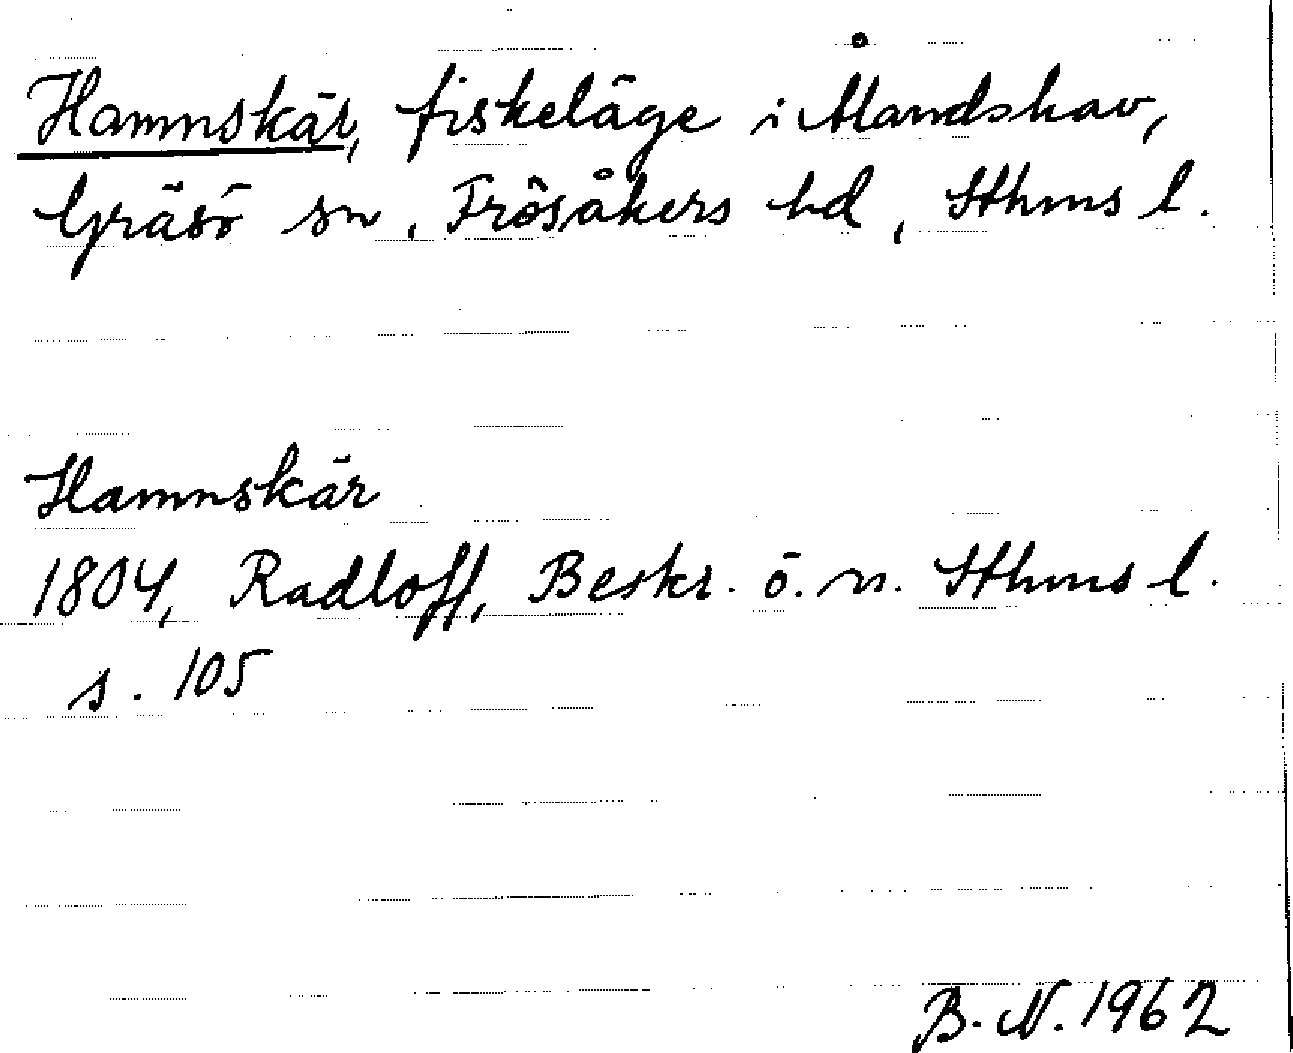 Hamnskär, fiskeläge i Ålandshav,
Gräsö sn, Frösåkers hd, Sthms l.
Hamnskär
1804, Radloff, Beskr. ö. n. Sthms l.
s. 105
B. N. 1962